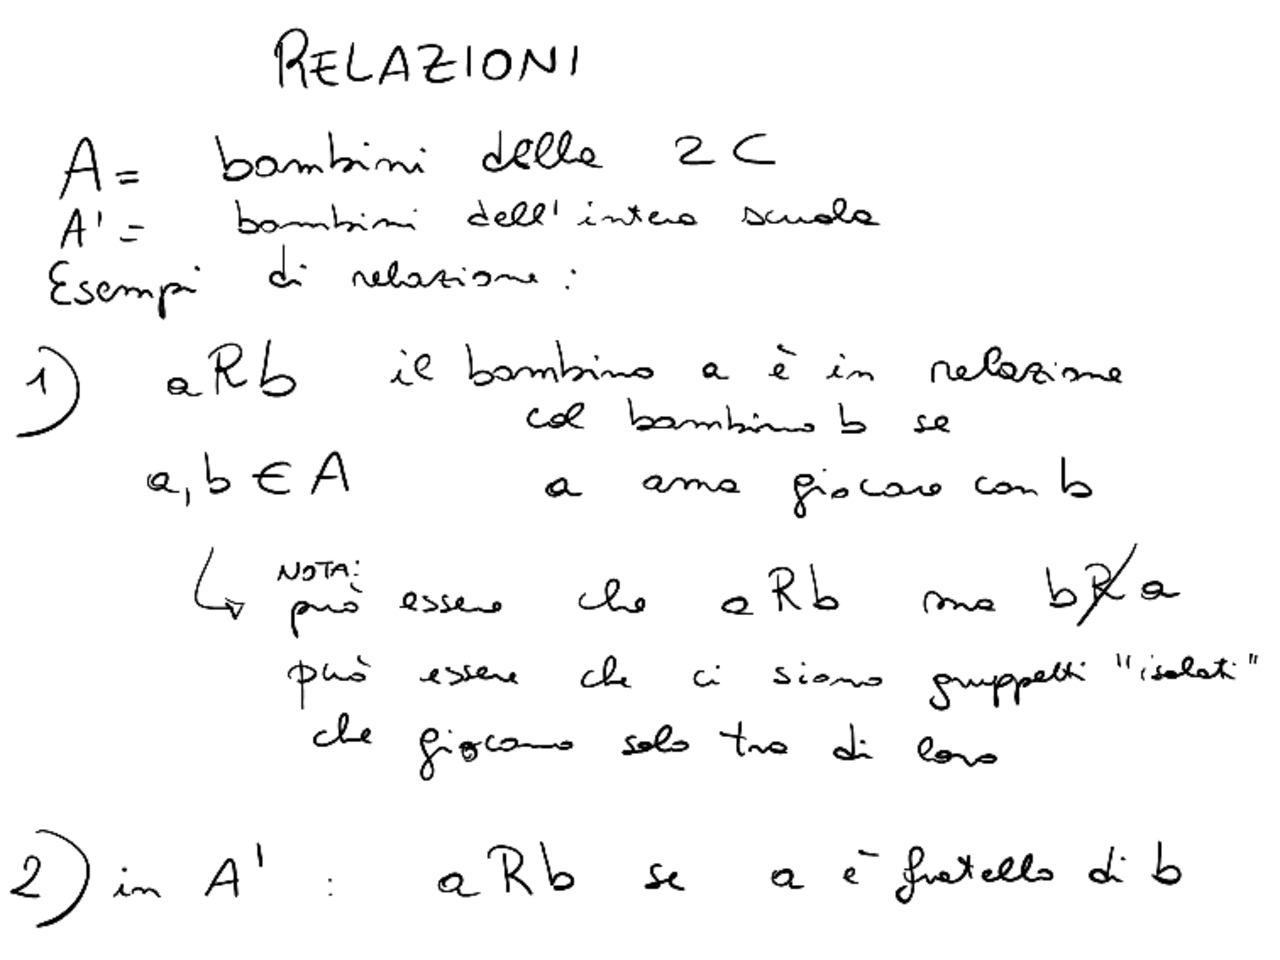 RELAZIONI
A = bambini della 2C
A' = bambini dell'intera scuola
Esempi di relazione:
1) aRb il bambino a è in relazione
col bambino b se
a, b ∈ A a ama giocare con b
NOTA:
può essere che aRb ma bR̸a
può essere che ci siano gruppetti "isolati"
che giocano solo tra di loro
2) in A' : aRb se a è fratello di b